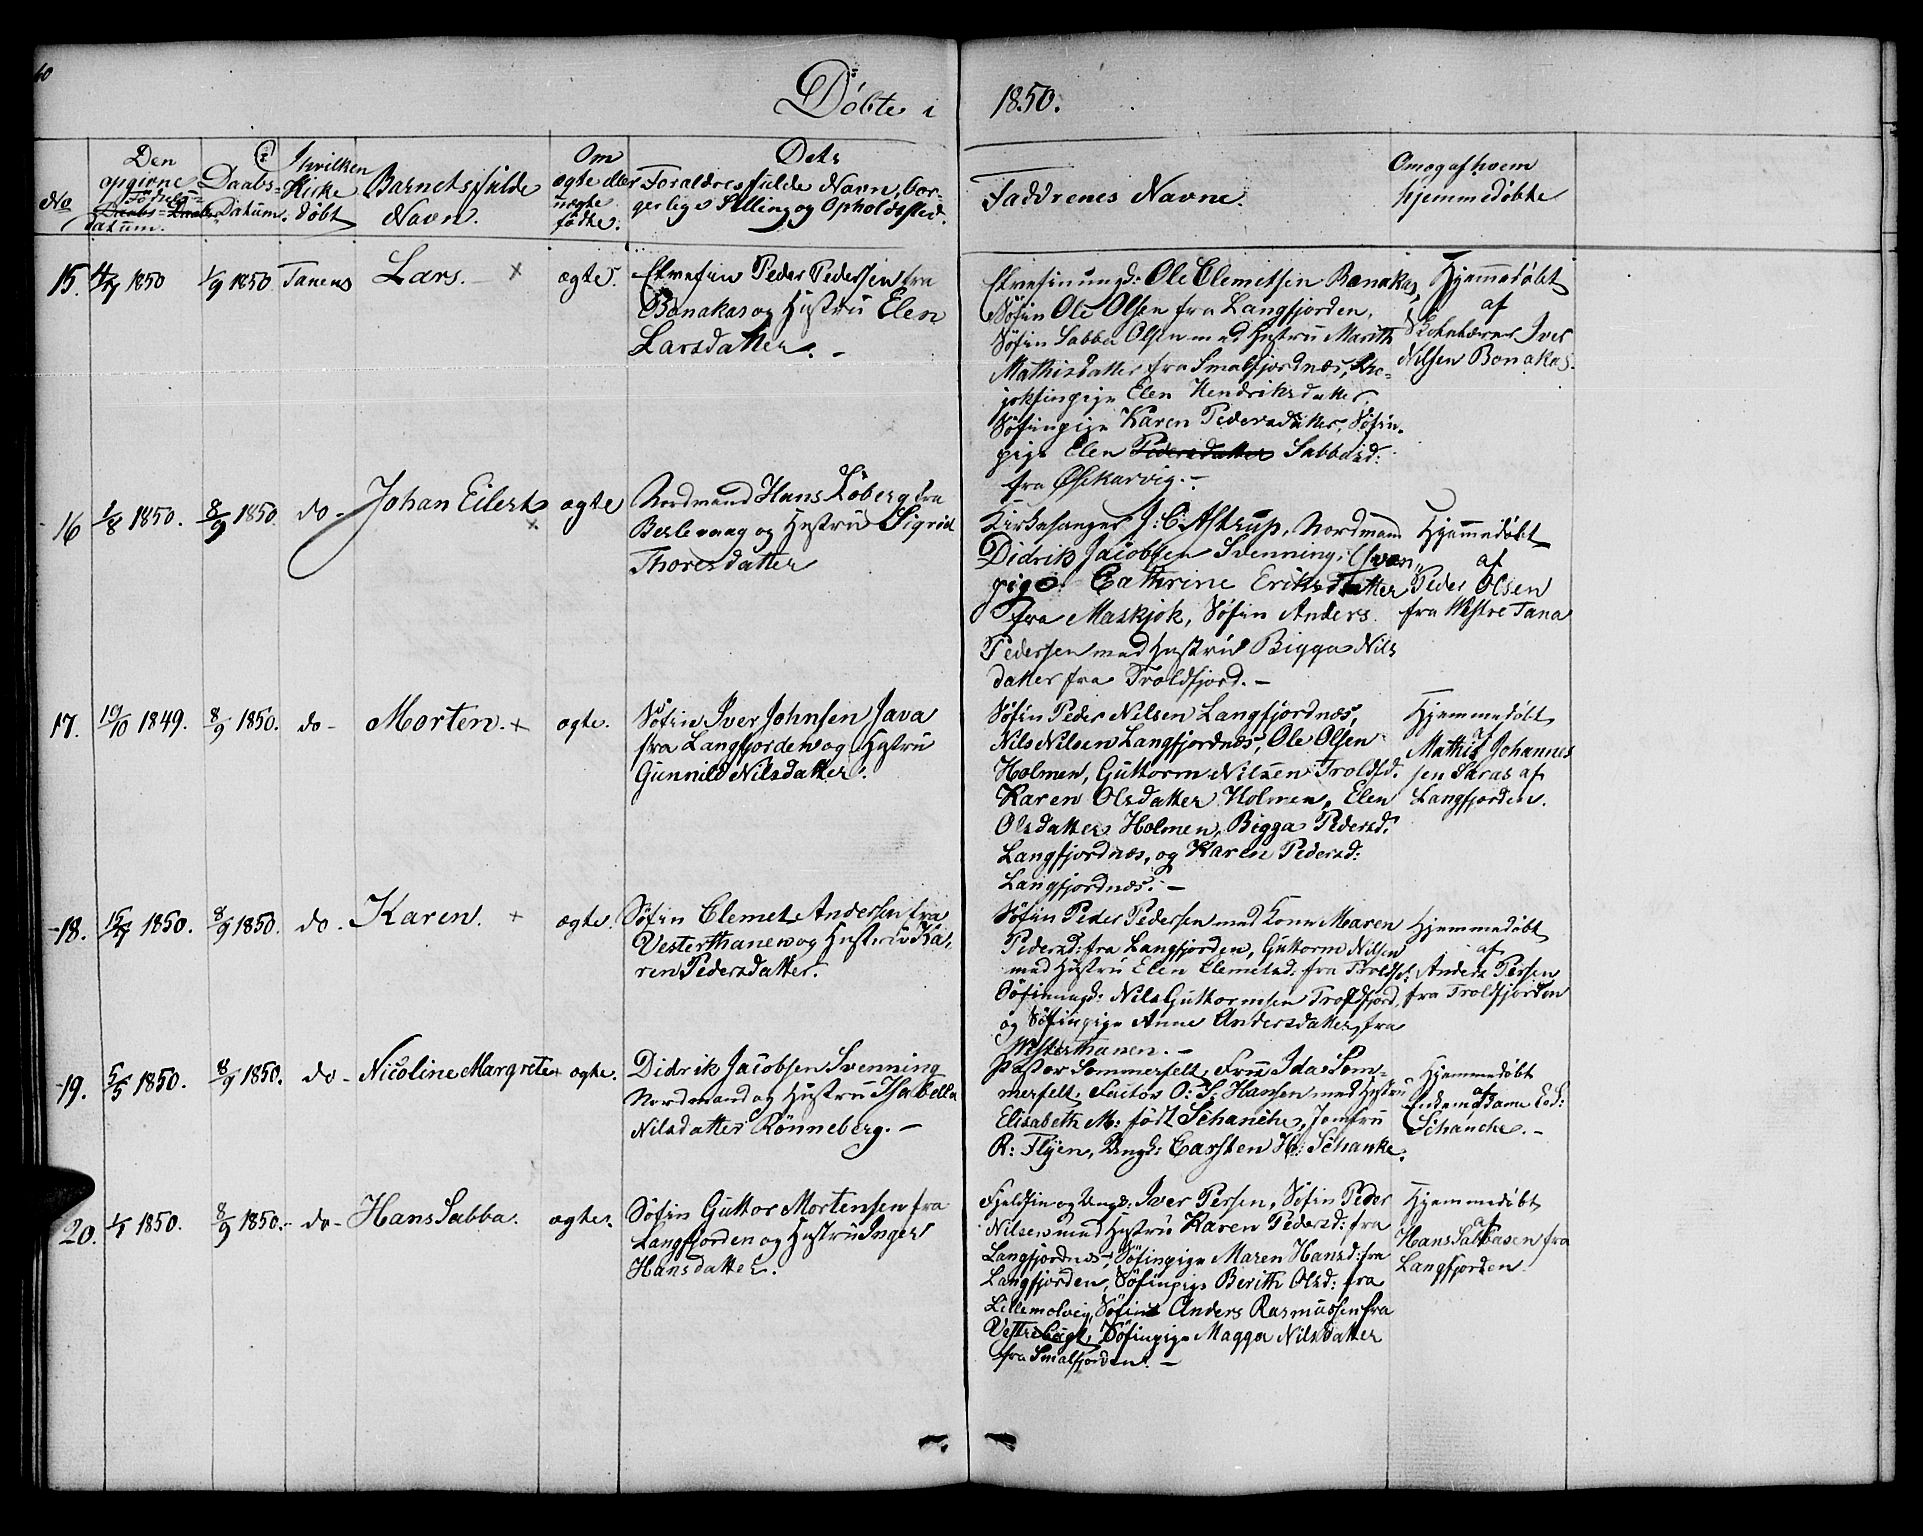 60
Döbte i 1850.
No
Den opgivne Födsels= datum.
Daabs= Datum.
I hvilken Kirke döbt
Barnets fulde Navn.
Om ægte eller uægte födte.
Dets Foraldres fulde Navn, borgerlige Stilling og Opholdssted.
Faddrenes Navne.
Om og af hvem hjemmedöbte
15.
1850
1/9 1850
Tanens
Lars. - x
ægte.
Elvefin Peder Pedersen fra
Bonakas og Hustru Elen
Larsdatter. -
Elvefinungd: Ole Clemetsen Bonakas,
Söfin Ole Olsen fra Langfjorden,
Söfin Sabba Olsen med Hustru Marith
Mathisdatter fra Smalfjordnæs,
Elen Hendriksdatter,
Söfinpige Karen Pedersdatter, Söfin-
pige Elen Pedersdatter Sabbasd:
fra
Hjemmedöbt
af
Skolelærer Iver
Nilsen Bonakas.
16
1/8 1850.
8/9 1850
do -
Johan Eilert x
ægte
Nordmand Hans Löberg fra
Berlevaag og Hustru Sigrid
Thoresdatter
Kirkesanger J: C: Astrup, Nordmand
Didrik Jacobsen Svenning, Qvæn-
pige Cathrine Eriksdatter
fra Maskjok, Söfin Anders
Pedersen med Hustru Bigga Nils
datter fra Troldfjord. -
Hjemmedöbt
af
Peder Olsen
fra Westre Tana
17.
19/10 1849.
8/9 1850.
do -
Morten. x
ægte.
Söfin Iver Johnsen Java
fra Langfjorden og Hustru
Gunnild Nilsdatter.
Söfin Peder Nilsen Langfjordnæs,
Nils Nilsen Langfjordnæs, Ole Olsen
Holmen, Guttorm Nilsen Troldfd.
Karen Olsdatter Holmen, Elen
Olsdatter Holmen, Bigga Pedersd.
Langfjordnæs, og Karen Pedersd:
Langfjordnæs. -
Hjemmedöbt
af
Mathis Johannes
sen Saras af
Langfjorden.
18.
1850.
8/9 1850.
do -
Karen. x
ægte.
Söfin Clemet Andersen fra
Vesterthanen og Hustru Ka,
ren Pedersdatter.
Söfin Peder Pedersen med Kone Maren
Pedersd: fra Langfjorden, Guttorm Nilsen
med Hustru Elen Clemetsd: fra Troldfd:
Söfinungd: Nils Guttormsen Troldfjord,
og Söfinpige Anne Andersdatter, fra
Westerthanen. -
Hjemmedöbt
af
Anders Persen
fra Troldfjorden
19.
5/5 1850.
8/9 1850.
do -
Nicoline Margrete x
ægte.
Didrik Jacobsen Svenning
Nordmand og Hustru Isabella
Nilsdatter Rönneberg. -
Pastor Sommerfelt, Fru Ida Som-
merfelt, Factor O: S: Hansen med Hustru
Elisabeth M: födt Schanche, Jomfru
R: Flyen, Ungd: Carsten H: Schanke.
Hjemmedöbt
af
Madame Ed:
Schanche. -
20.
1850.
8/9 1850. -
do -
Hans Sabba.
ægte.
Söfin Guttor Mortensen fra
Langfjorden og Hustru Inger
Hansdatter.
Fjeldfin og Ungd: Iver Persen, Söfin Peder
Nilsen med Hustru Karen Pedersd: fra
Langfjordnæs, Söfinpige Maren Hansd: fra
Langfjorden, Söfinpige Berith Olsd: fra
Lillemolvig, Söfin Anders Rasmussen fra
Vestre Bugt, Söfinpige Magga Nilsdatter
fra Smalfjorden. -
Hjemmedöbt
af
Hans Sabbasen fra
Langfjorden.